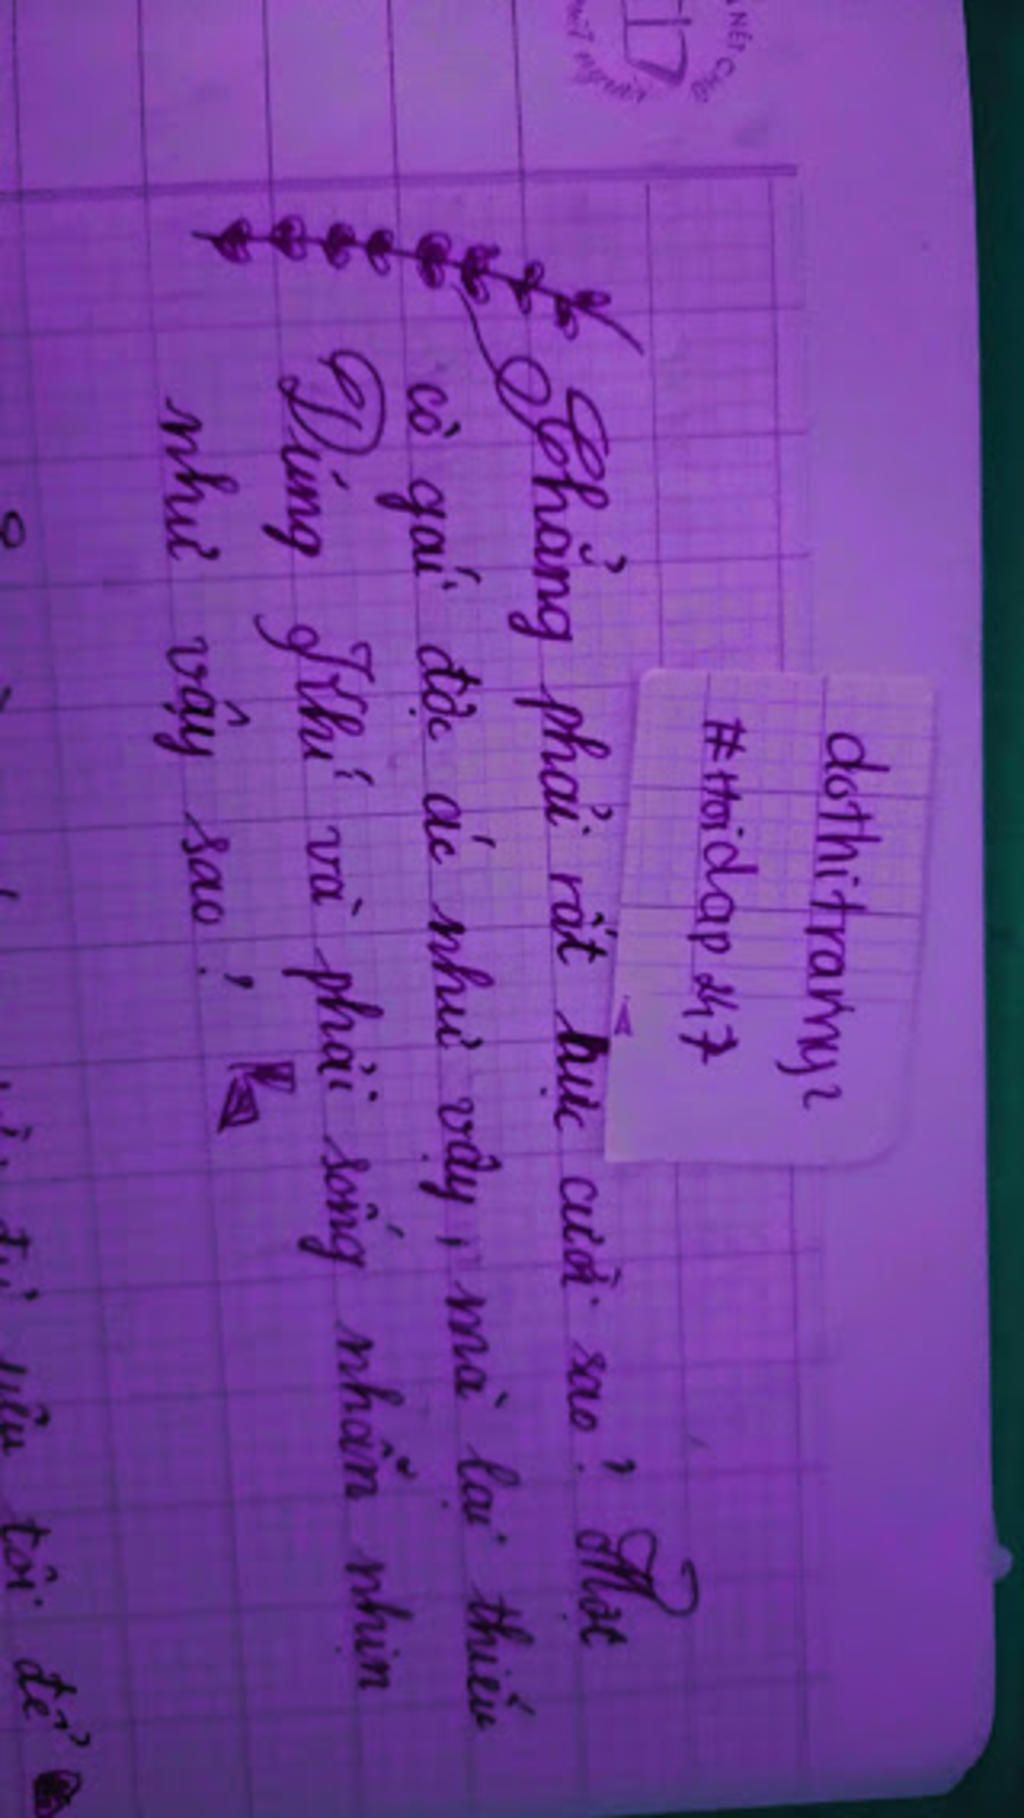 NÉT CHỮ
NẾT NGƯỜI
dothitramy2
#Hoidap247
Chẳng phải rất hực cười sao? Một
cô gái độc ác như vậy, mà lại thiếu
Dũng Khí và phải sống nhẫn nhịn
như vậy sao!
tôi để